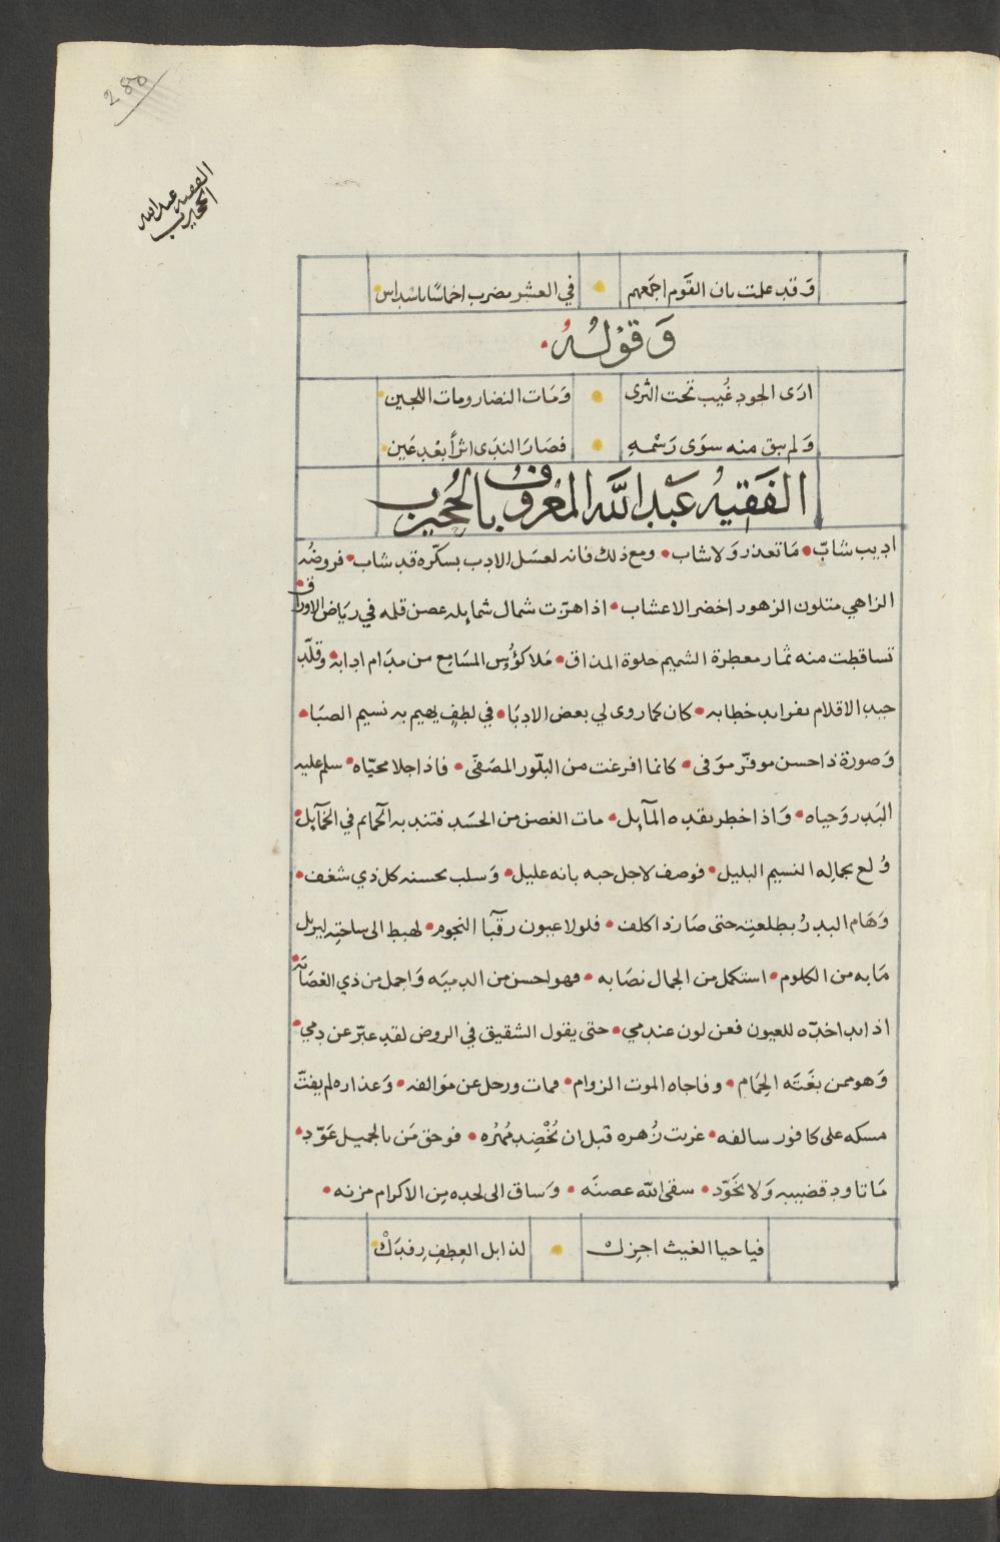 280
الفقيه عبدالله
الحجيرب
وَقد علمت بان القَوم اجمَعهم • في العشر بضرب اخماسًا باسداس
وَقوْلهُ
ارَى الجود غُيب تحت الثرى • وَمَات النضار ومات اللجين
وَلم يبق منه سوَى رَسْمهِ • فصَارَ الندَى اثرًا بعْد عَين
الفَقِيهُ عَبد اللَّه المَعْروف بالحُجيرب
اديب شابّ • مَا تعذر وَلا شاب • ومع ذلك فانه لعسَل الادب بسكّره قد شاب • فروضُه
الزاهي متلون الزهور اخضر الاعشاب • اذا هزّت شمال شمايله غصن قلمه في ريَاض الاوراق •
تساقطت منه ثمار معطرة الشميم حلوة المذاق • مَلا كؤُوس المسَامِع من مدَام ادابه • وقلّد
جيد الاقلام بفرايد خطابه • كان كما روى لي بعض الادبَا • في لطف يهيم به نسيم الصبَا •
وَصورة ذا حسن موفّر موَفى • كانما افرغت من البلّور المصَفّى • فاذا جلا محيّاه • سلم عليه
البَدر وَحياه • وَاذا خطر بقده المآيل • مات الغصن من الحسَد فتندبه الحمايم في الخمآيل •
وُلع بجمالِه النسيم البليل • فوصف لاجل حبه بانه عليل • وَسلب بحسنه كل ذي شغف •
وَهَام البدرُ بطلعتِه حتى صَار ذا كلف • فلولا عيون رقبآ النجوم • لهبط الى ساحتِه ليزيل
مَا به من الكلوم • استكمل من الجمال نصَابه • فهو احسن من الدميَه وَاجمل من ذي الغصَابَه •
اذا بدا خدّه للعيون فعن لون عندمي • حتى يقول الشقيق في الروض لقد عبّر عن دمي •
وَهو ممن بغَتَه الحِمَام • وفاجاه الموت الزوام • فمات ورحل عن موَالفه • وَعذاره لم يفتّ
مسكه على كافور سالفه • غربت زُهره قبل ان تُخْضِد مُهرُه • فوحق مَن بالجميل عَوّد •
مَا تاود قضيبه وَلا تخَوّد • سقى الله غصنَه • وَساق الى لحده مِن الاكرام مزنه •
فيا حيا الغيث اجِزِك • لذابل العِطفِ رِفدَكْ